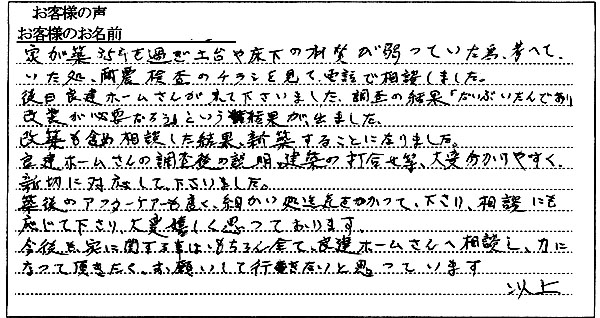 お客様の声
お客様のお名前
家が築35年を過ぎ土台や床下の材質が弱っていた為、考えて
いた処、耐震検査のチラシを見て、電話で相談しました。
後日良建ホームさんが来て下さいました、調査の結果「だいぶいたんであり
改築が必要だろう」という結果が出ました。
改築も含め相談した結果、新築することになりました。
良建ホームさんの調査後の説明、建築の打合せ等、大変分かりやすく、
親切に対応して下さいました。
築後のアフターケアーも良く、細かい処迄気をつかって、下さり、相談にも
応じて下さり、大変嬉しく思っております。
今後も家に関する事はもちろん全て、良建ホームさんへ相談し、力に
なって頂きたく、お願いして行きたいと思っています
以上